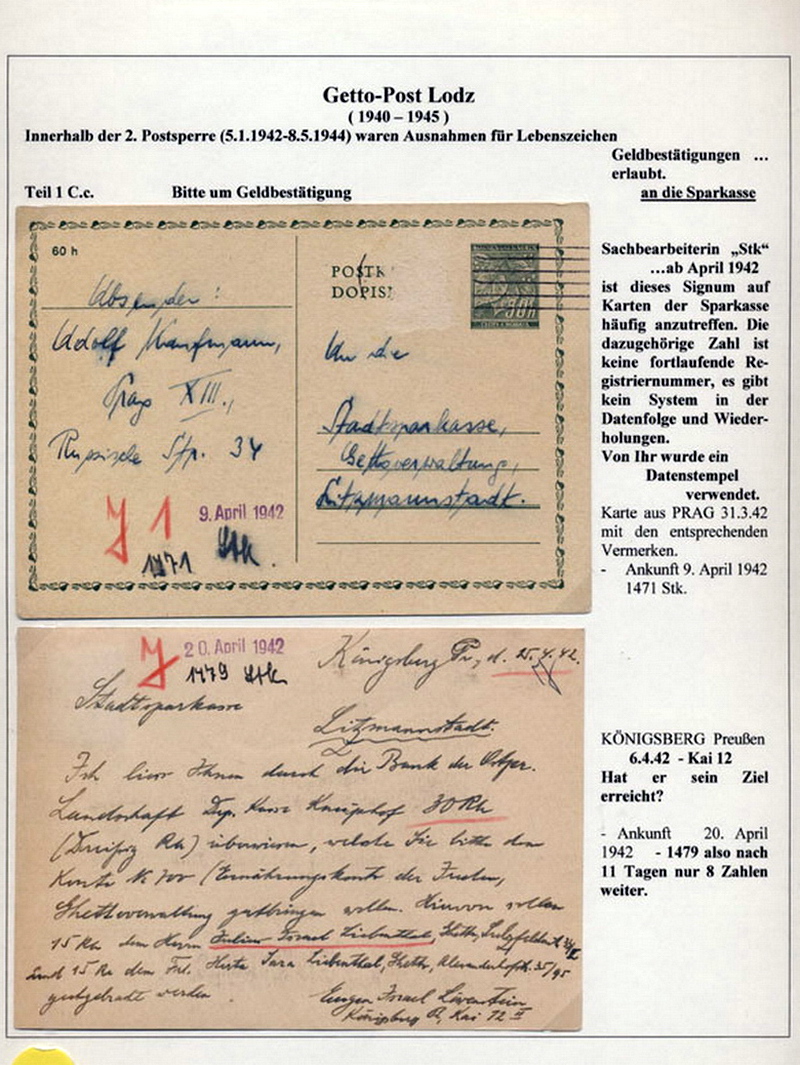 Getto-Post Lodz
( 1940 – 1945 )
Innerhalb der 2. Postsperre (5.1.1942-8.5.1944) waren Ausnahmen für Lebenszeichen
Geldbestätigungen …
erlaubt.
Teil 1 C.c. Bitte um Geldbestätigung an die Sparkasse
60 h
POSTK
DOPIS
Absender :
Adolf Kaufmann,
Prag XIII.,
Russische Str. 34
An die
Stadtsparkasse,
Gettoverwaltung,
Litzmannstadt.
J 1
9. April 1942
1471 Stk.
Sachbearbeiterin „Stk“
…ab April 1942
ist dieses Signum auf
Karten der Sparkasse
häufig anzutreffen. Die
dazugehörige Zahl ist
keine fortlaufende Re-
gistriernummer, es gibt
kein System in der
Datenfolge und Wieder-
holungen.
Von Ihr wurde ein
Datenstempel
verwendet.
Karte aus PRAG 31.3.42
mit den entsprechenden
Vermerken.
- Ankunft 9. April 1942
1471 Stk.
J 20. April 1942
1479 Stk
Königsberg Pr, d. 4.42.
Stadtsparkasse
Litzmannstadt.
Ich liess Ihnen durch die Bank der Ostpr.
Landschaft Dep. Kasse Kneiphof 30 Rm
(Dreißig Rm) überweisen, welche Sie bitte dem
Konto N 700 (Ernährungskonto der Juden,
Ghettoverwaltung gutbringen wollen. Hiervon sollen
15 Rm dem Herrn Julius Israel Liebenthal, Ghetto,
und 15 Rm dem Frl. Herta Sara Liebenthal, Ghetto, Alexanderhofstr. 35/95
gutgebracht werden.
Eugen Israel Löwenstein
Königsberg Pr, Kai 12 II
KÖNIGSBERG Preußen
6.4.42 - Kai 12
Hat er sein Ziel
erreicht?
- Ankunft 20. April
1942 - 1479 also nach
11 Tagen nur 8 Zahlen
weiter.